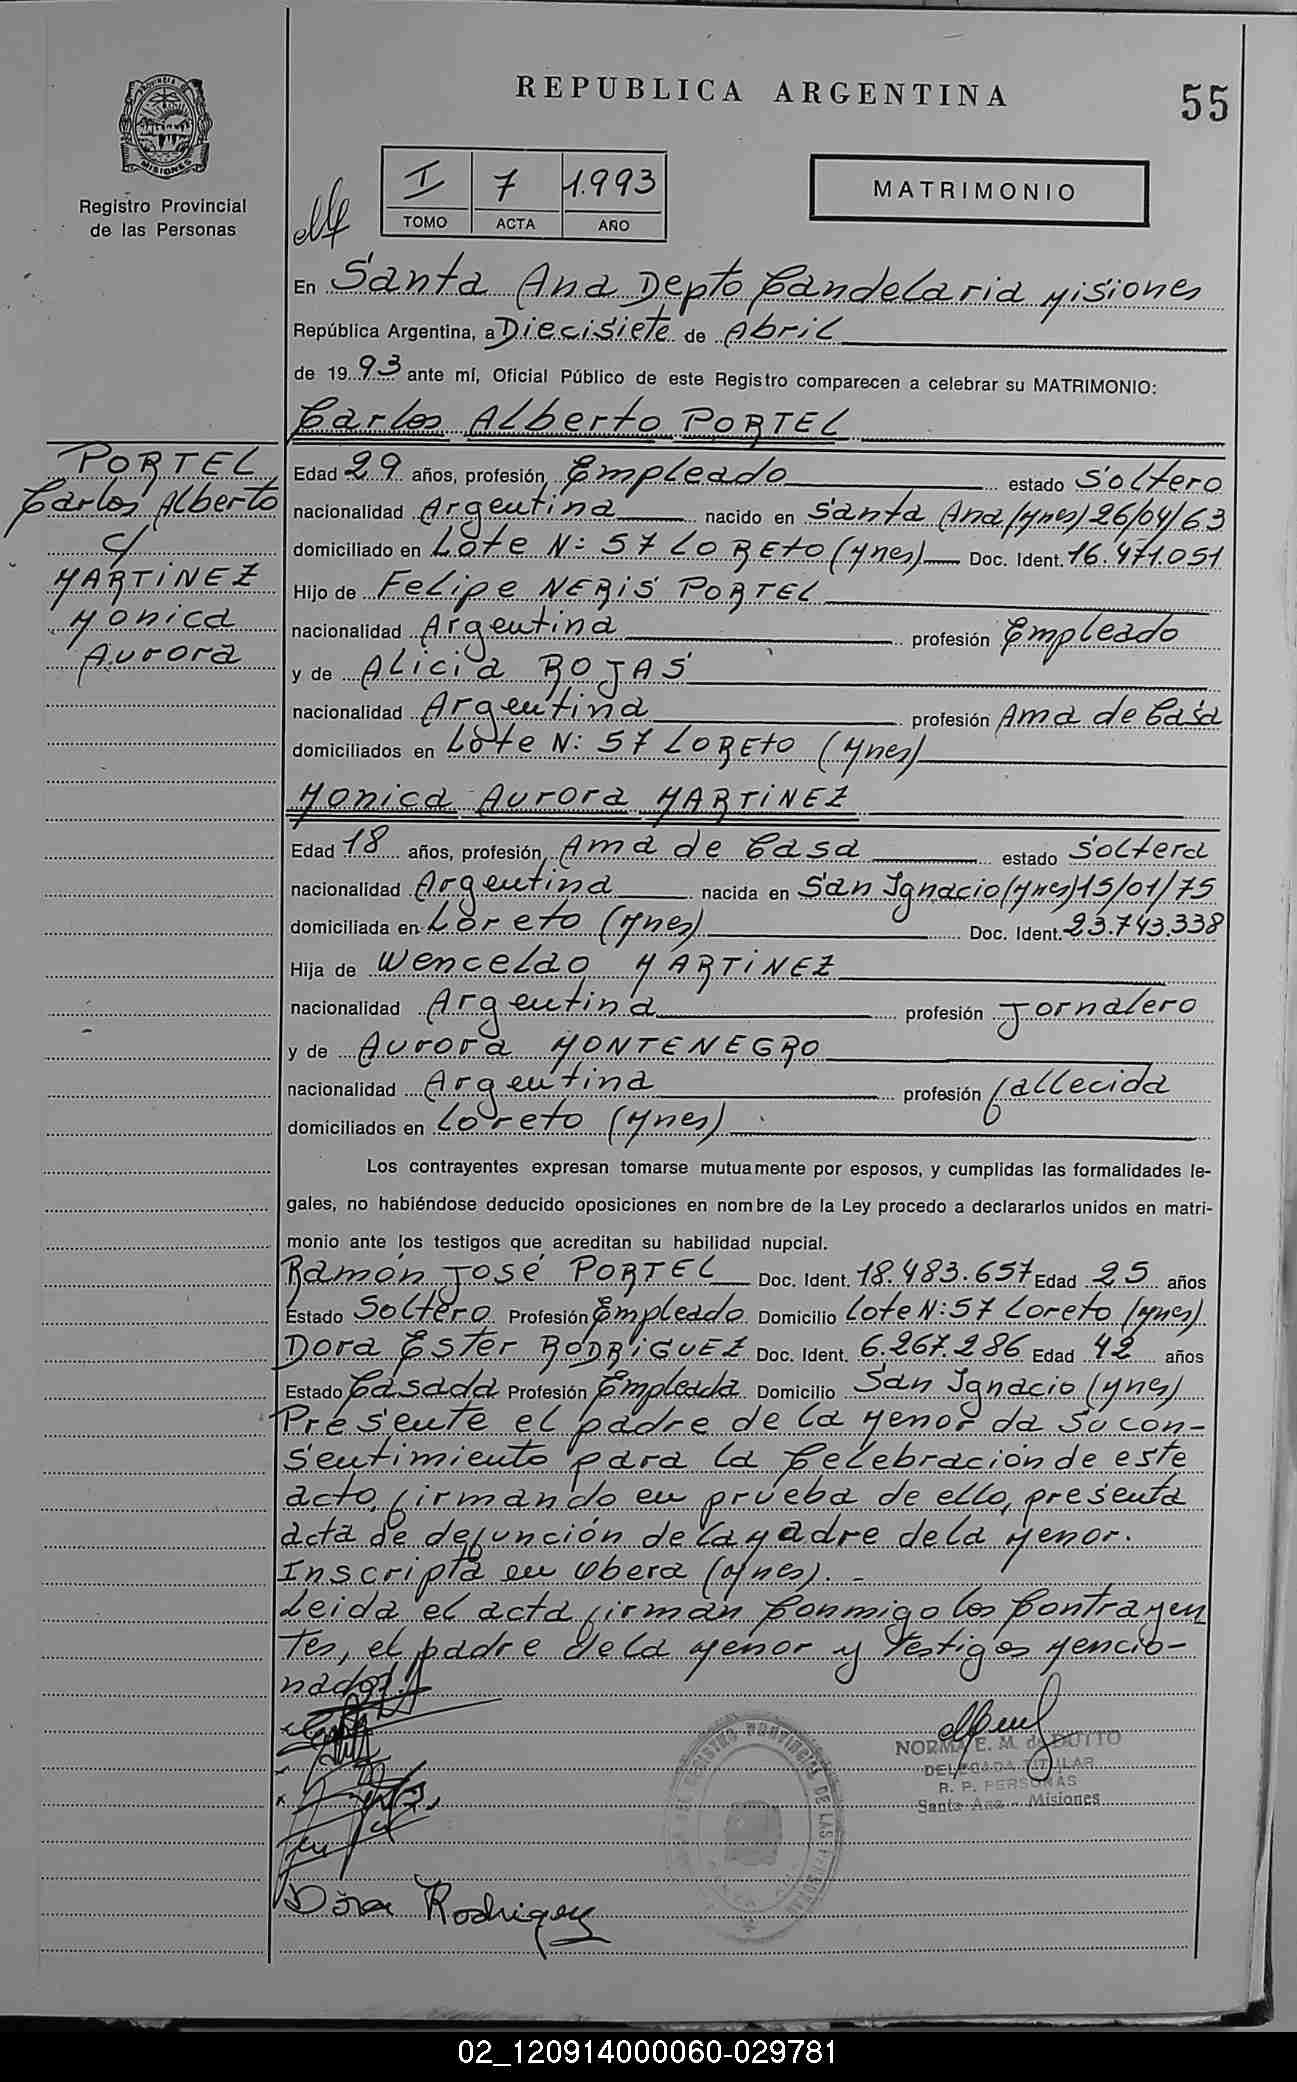 REPUBLICA ARGENTINA
55
PROVINCIA DE MISIONES
Registro Provincial
de las Personas
I 7 1.993
TOMO ACTA AÑO
MATRIMONIO
En Santa Ana Depto Candelaria Misiones
República Argentina, a Diecisiete de Abril
de 19 93 ante mí, Oficial Público de este Registro comparecen a celebrar su MATRIMONIO:
Carlos Alberto PORTEL
PORTEL
Carlos Alberto
c/
MARTINEZ
Monica
Aurora
Edad 29 años, profesión Empleado estado Soltero
nacionalidad Argentina nacido en Santa Ana (Mnes) 26/04/63
domiciliado en Lote N: 57 LORETO (Mnes) Doc. Ident. 16.471.051
Hijo de Felipe NERIS PORTEL
nacionalidad Argentina profesión Empleado
y de Alicia ROJAS
nacionalidad Argentina profesión Ama de Casa
domiciliados en Lote N: 57 LORETO (Mnes)
Monica Aurora MARTINEZ
Edad 18 años, profesión Ama de Casa estado Soltera
nacionalidad Argentina nacida en San Ignacio (Mnes) 15/01/75
domiciliada en Loreto (Mnes) Doc. Ident. 23.743.338
Hija de Wenceldo MARTINEZ
nacionalidad Argentina profesión Jornalero
y de Aurora MONTENEGRO
nacionalidad Argentina profesión fallecida
domiciliados en Loreto (Mnes)
Los contrayentes expresan tomarse mutuamente por esposos, y cumplidas las formalidades le-
gales, no habiéndose deducido oposiciones en nombre de la Ley procedo a declararlos unidos en matri-
monio ante los testigos que acreditan su habilidad nupcial.
Ramón José PORTEL Doc. Ident. 18.483.657 Edad 25 años
Estado Soltero Profesión Empleado Domicilio Lote N: 57 Loreto (Mnes)
Dora Ester RODRIGUEZ Doc. Ident. 6.267.286 Edad 42 años
Estado Casada Profesión Empleada Domicilio San Ignacio (Mnes)
Presente el padre de la Menor da su con-
sentimiento para la Celebración de este
acto, firmando en prueba de ello, presenta
acta de defunción de la Madre de la Menor.
Inscripta en Obera (Mnes). -
Leida el acta firman Conmigo los Contrayen
tes, el padre de la Menor y Testigos Mencio-
nados.
NORMA E. M. de DUTTO
DELEGADA TITULAR
R. P. PERSONAS
Santa Ana - Misiones
REGISTRO PROVINCIAL DE LAS PERSONAS
Dora Rodriguez
02_120914000060-029781